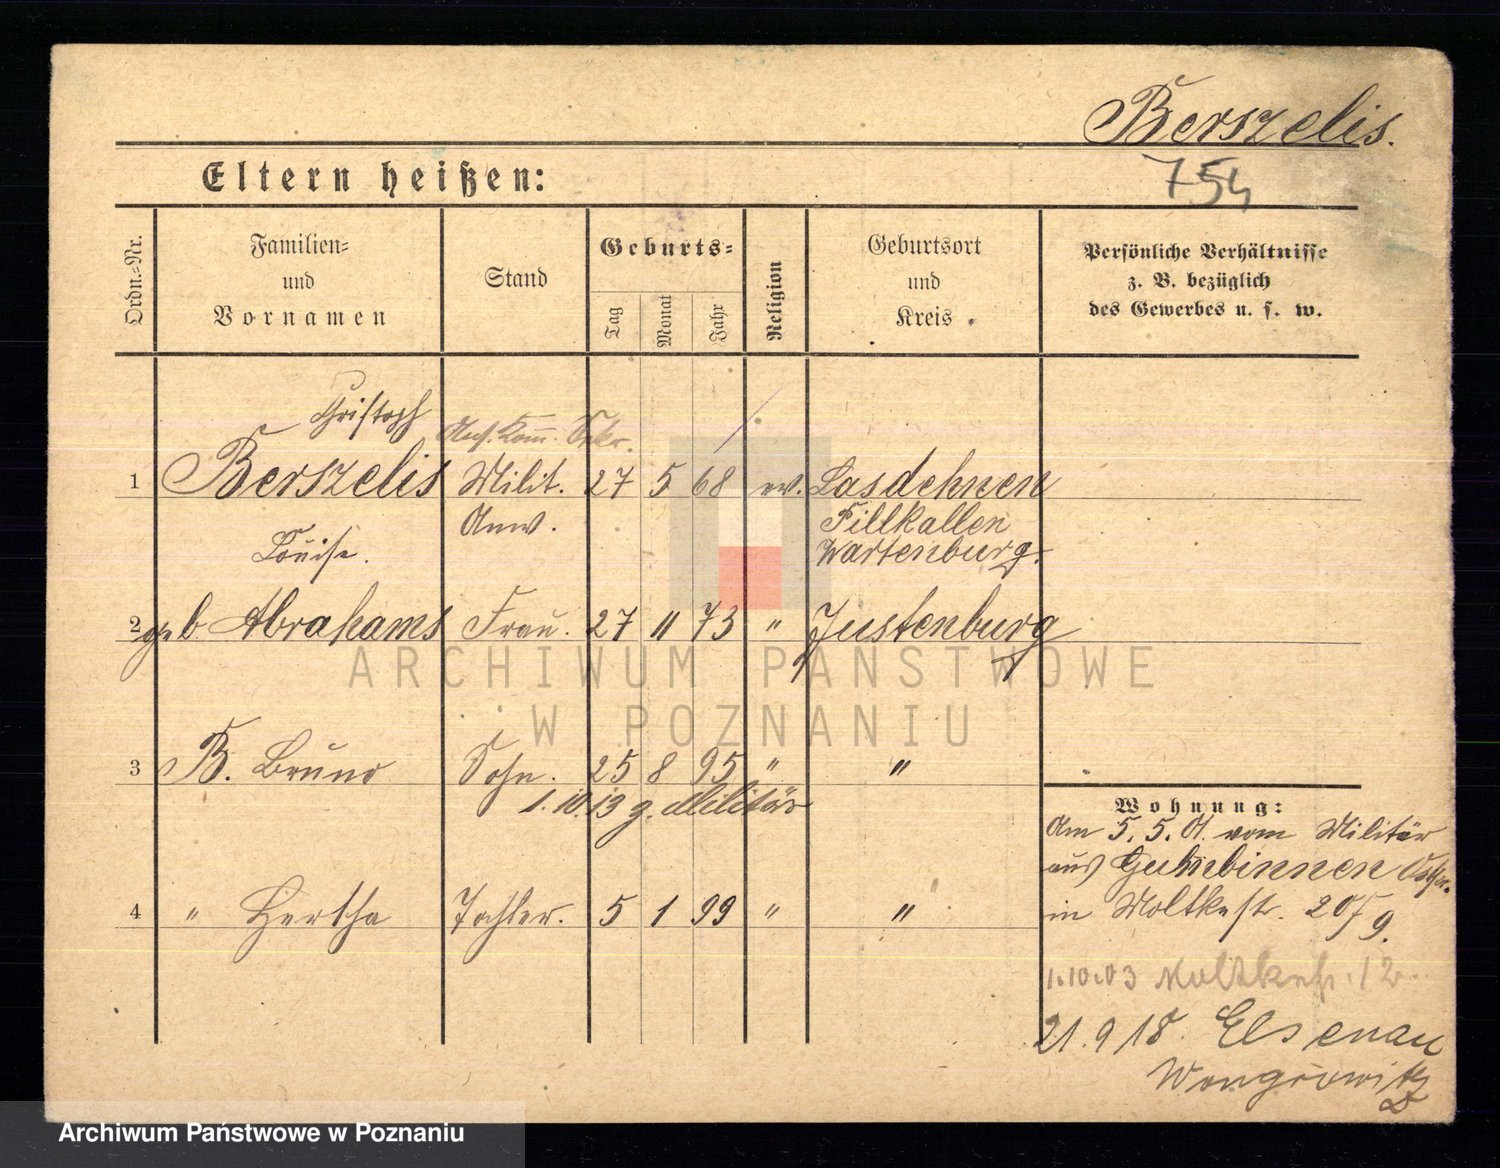 Berszelis.
754
Eltern heißen:
Ordn.-Nr.
Familien-
und
Vornamen
Stand
Geburts-
Tag
Monat
Jahr
Religion
Geburtsort
und
Kreis
Persönliche Verhältnisse
z. B. bezüglich
des Gewerbes u. s. w.
Christoph
Ans. Kom. Sekr.
1 Berszelis Milit. 27 5 68 ev. Lasdehnen
Anw. Pillkallen
Louise. Wartenburg.
2 geb Abrahams Frau. 27 11 73 " Justenburg
3 B. Bruno Sohn. 25 8 95 " "
1.10.13 z. Militär
4 " Hertha Tochter. 5 1 99 " "
Wohnung:
Am 5. 5. 01. vom Militär
aus Gumbinnen Ostpr.
in Moltkestr. 9.
1.10.03 Moltkestr. 12
21.9 18. Elsenau
Wongrowitz
ARCHIWUM PAŃSTWOWE
W POZNANIU
Archiwum Państwowe w Poznaniu